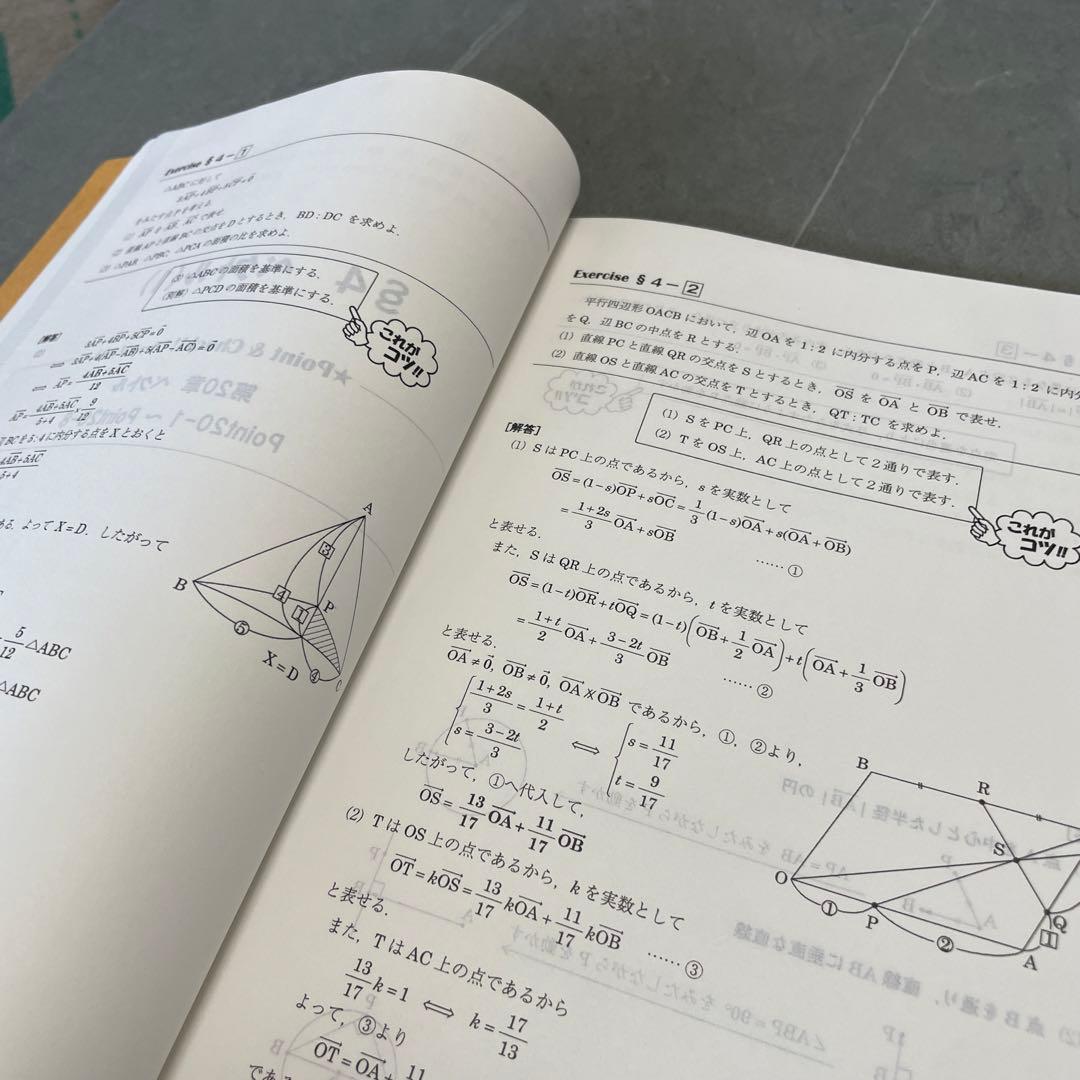 Exercise §4-1
△ABCに対して
3AP+4BP+5CP=0
をみたす点Pを考える.
(1) APをAB, ACで表せ.
(2) 直線APと直線BCの交点をDとするとき, BD:DCを求めよ.
(3) △PAB, △PBC, △PCAの面積の比を求めよ.
(3) △ABCの面積を基準にする.
(別解) △PCDの面積を基準にする.
これが
コツ!!
[解答]
(1) 3AP+4BP+5CP=0
⟺ 3AP+4(AP-AB)+5(AP-AC)=0
⟺ AP=(4AB+5AC)/12
AP=(4AB+5AC)/(5+4)×9/12
BCを5:4に内分する点をXとおくと
(4AB+5AC)/(5+4)
ある. よってX=D. したがって
5/12△ABC
△ABC
A
3
B
4
1
P
5
X=D
4
C
Exercise §4-2
平行四辺形OACBにおいて, 辺OAを1:2に内分する点をP, 辺ACを1:2に内分
をQ, 辺BCの中点をRとする.
(1) 直線PCと直線QRの交点をSとするとき, OSをOAとOBで表せ.
(2) 直線OSと直線ACの交点をTとするとき, QT:TCを求めよ.
(1) SをPC上, QR上の点として2通りで表す.
(2) TをOS上, AC上の点として2通りで表す.
これが
コツ!!
[解答]
(1) SはPC上の点であるから, sを実数として
OS=(1-s)OP+sOC=1/3(1-s)OA+s(OA+OB)
=(1+2s)/3 OA+sOB ……①
と表せる.
また, SはQR上の点であるから, tを実数として
OS=(1-t)OR+tOQ=(1-t)(OB+1/2 OA)+t(OA+1/3 OB)
=(1+t)/2 OA+(3-2t)/3 OB ……②
と表せる.
OA≠0, OB≠0, OA∦OBであるから, ①, ②より,
(1+2s)/3=(1+t)/2
s=(3-2t)/3
⟺
s=11/17
t=9/17
したがって, ①へ代入して,
OS=13/17 OA+11/17 OB
(2) TはOS上の点であるから, kを実数として
OT=kOS=13/17 kOA+11/17 kOB ……③
と表せる.
また, TはAC上の点であるから
13/17 k=1 ⟺ k=17/13
よって, ③より
OT=OA+11
である
B
R
S
O
①
P
②
Q
1
A